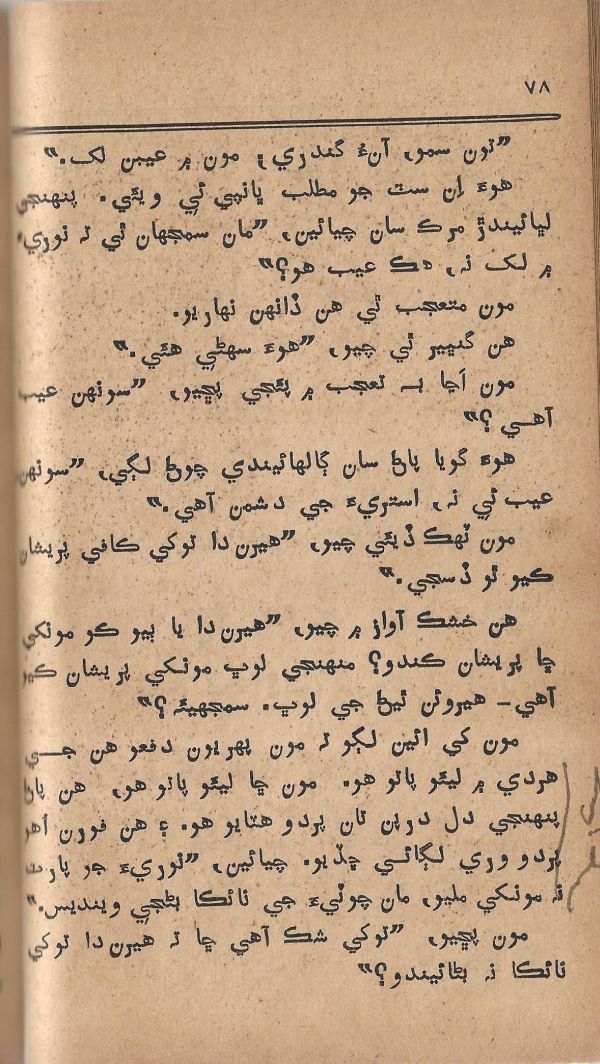 ٧٨
”تون سمو، آنءُ گندري، مون ۾ عيبن لک.“
هوءَ اِن سٽ جو مطلب ڀانپي ئي ويئي. پنهنجي
لڀائيندڙ مرڪ سان چيائين، ”مان سمجهان ٿي ته نوري
۾ لک نه، هڪ عيب هو؟“
مون متعجب ٿي هن ڏانهن نهاريو.
هن گنڀير ٿي چيو، ”هوءَ سهڻي هئي.“
مون اَڃا به تعجب ۾ پئجي پڇيو، ”سونهن عيب
آهي؟“
هوءَ گويا پاڻ سان ڳالهائيندي چوڻ لڳي، ”سونهن
عيب ئي نه، استريءَ جي دشمن آهي.“
مون ٽهڪ ڏيئي چيو، ”هيرن دا توکي ڪافي پريشان
ڪيو ٿو ڏسجي.“
هن خشڪ آواز ۾ چيو، ”هيرن دا يا ٻيو ڪو مونکي
ڇا پريشان ڪندو؟ منهنجي لوڀ مونکي پريشان ڪيو
آهي – هيروئن ٿيڻ جي لوڀ. سمجهيئه؟“
مون کي ائين لڳو ته مون پهريون دفعو هن جي
هردي ۾ ليئو پاتو هو. مون ڇا ليئو پاتو هو، هن پاڻ
پنهنجي دل درپن تان پردو هٽايو هو. ۽ هن فورن اهو
پردو وري لڳائي ڇڏيو. چيائين، ”نوريءَ جو پارٽ
نه مونکي مليو، مان چوٽيءَ جي نائڪا بڻجي وينديس.“
مون پڇيو، ”توکي شڪ آهي ڇا ته هيرن دا توکي
نائڪا نه بڻائيندو؟“